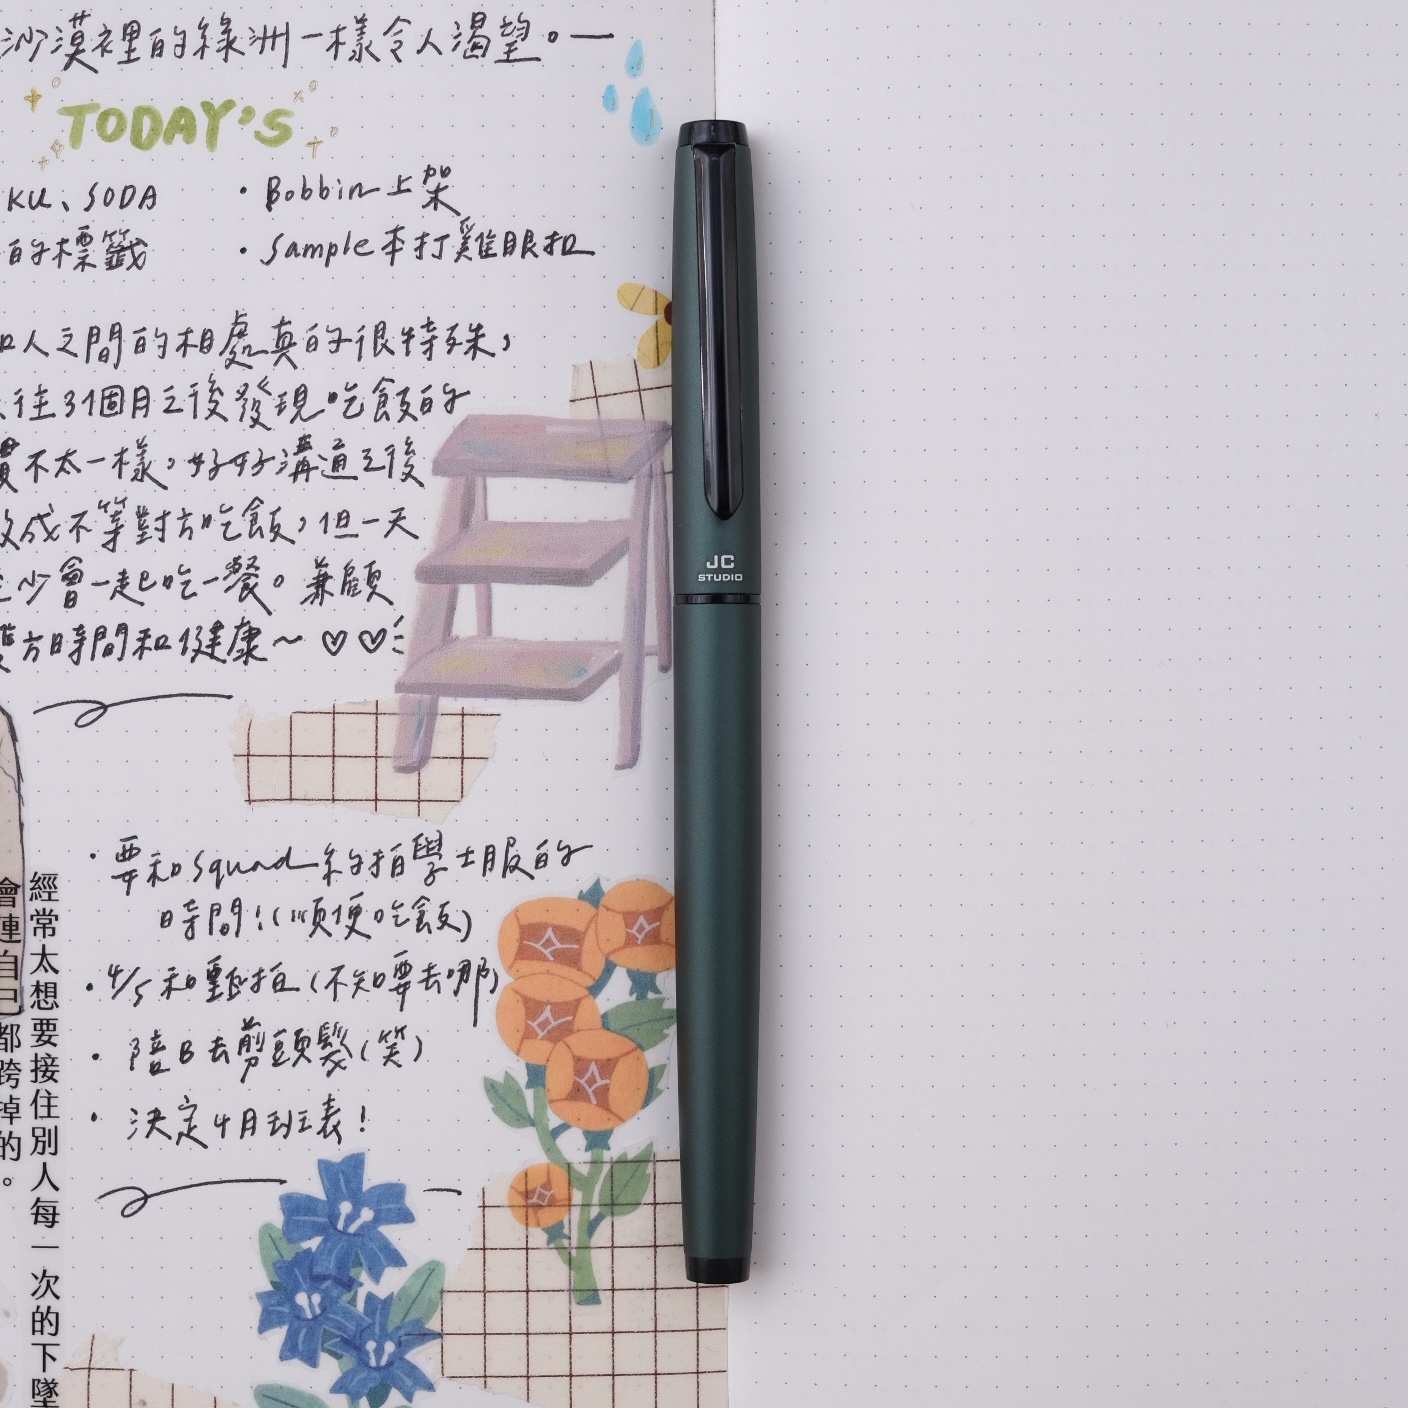 沙漠裡的綠洲一樣令人渴望。一
TODAY'S
KU、SODA
・Bobbin上架
的標籤
・Sample本打雞眼扣
人之間的相處真的很特殊,
往3個月之後發現吃飯的
不太一樣,好好溝通之後
成不等對方吃飯,但一天
少會一起吃一餐。兼顧
雙方時間和健康~ ♡♡
・要和Squad約拍學士服的
時間!(順便吃飯)
・4/5和甄拍(不知要去哪)
・陪B去剪頭髮(笑)
・決定4月班表!
經常太想要接住別人每一次的下墜
會連自己都跨掉的。
JC
STUDIO